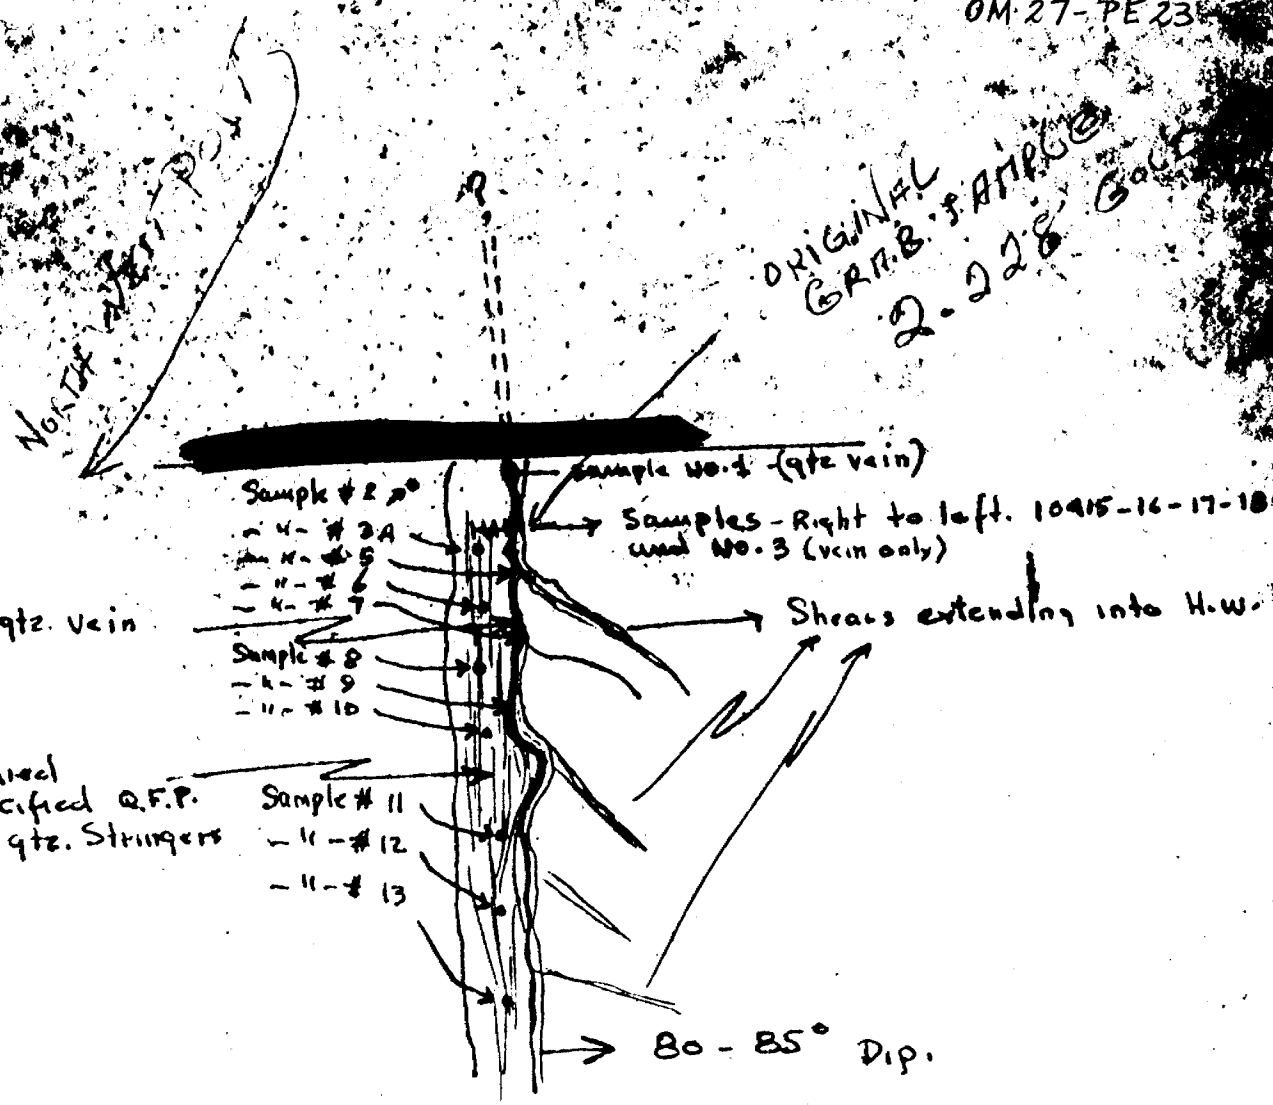 OM·27-PE 23
ORIGINAL
GRAB SAMPLE
2.228 GOLD
NORTH
Sample No. 1 - (qtz vein)
Sample # 2
- " - # 3A
- " - # 5
- " - # 6
- " - # 7
Samples - Right to left. 10415-16-17-18
and No. 3 (vein only)
qtz. vein
Shears extending into H.W.
Sample # 8
- " - # 9
- " - # 10
Q.F.P.
qtz. Stringers
Sample # 11
- " - # 12
- " - # 13
80 - 85° Dip.